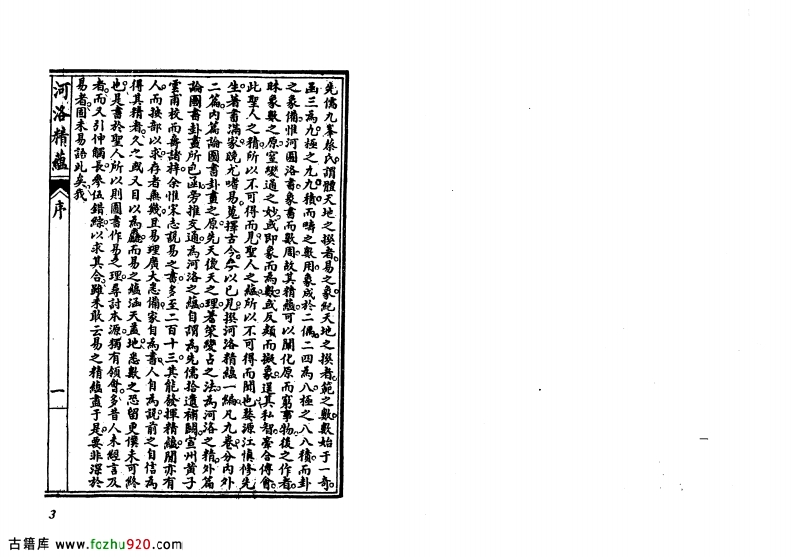 先儒九峯蔡氏謂體天地之撰者易之象紀天地之撰者範之數數始于一奇
象成於二偶
函三為九九極之九九積而疇之數用象成於二偶二四為八極之八八積而卦
之象備惟河圖洛書象書而數周故其精蘊可以開化原而窮事物後之作者
昧象數之原窒變通之妙或即象而為數或反類而擬象逞其私智牽合傅會
此聖人之精所以不可得而見聖人之蘊所以不可得而聞也婺源江慎修先
生著書滿家晚尤嗜易蒐擇古今參以已見撰河洛精蘊一編凡九卷分內外
二篇內篇論圖書卦畫之原先天後天之理蓍策變占之法為河洛之精外篇
論圖書卦畫所包函旁推交通為河洛之蘊自謂為先儒拾遺補闕宣州黃子
雲甫校而壽諸梓余惟宋志說易之書多至二百十三其能發揮精蘊間亦有
人而按部以求存者無幾且易理廣大悉備家自為書人自為說前之自信為
得其精者久之或又目以為麤而易之蘊涵天蓋地悉數之恐留更僕未可終
也是書於聖人所以則圖書作易之理尋討本源獨有領會多昔人未經言及
者而又引伸觸長參伍錯綜以求其合雖未敢云易之精蘊盡于是要非深於
易者固未易語此矣我
河洛精蘊
序
一
3
古籍库 www.fozhu920.com